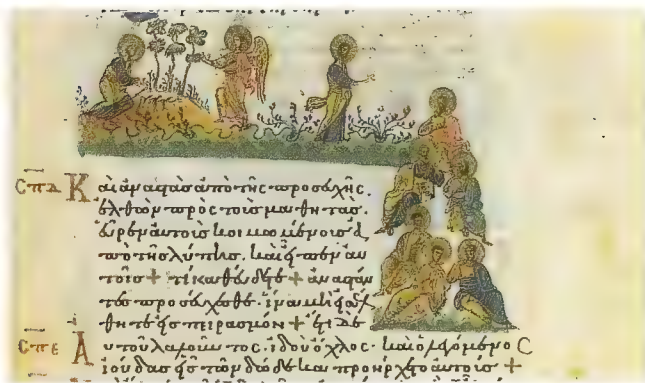 σπδ Καὶ ἀναστὰς ἀπὸ τῆς προσευχῆς.
ἐλθὼν πρὸς τοὺς μαθητὰς.
εὗρεν αὐτοὺς κοιμωμένους ἀ
πὸ τῆς λύπης. καὶ εἶπεν αὐ
τοῖς + τί καθεύδετε + ἀναστάν
τες προσεύχεσθε. ἵνα μὴ εἰσέλ
θητε εἰς πειρασμόν + ἔτι δὲ
σπε Αὐτοῦ λαλοῦντος. ἰδοὺ ὄχλος. καὶ ὁ λεγόμενος
ἰούδας εἷς τῶν δώδεκα προήρχετο αὐτοῖς +